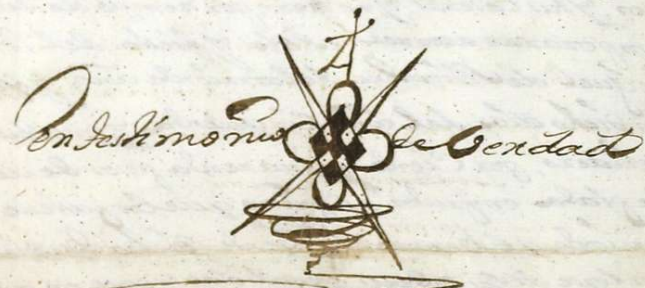 en testimonio de verdad